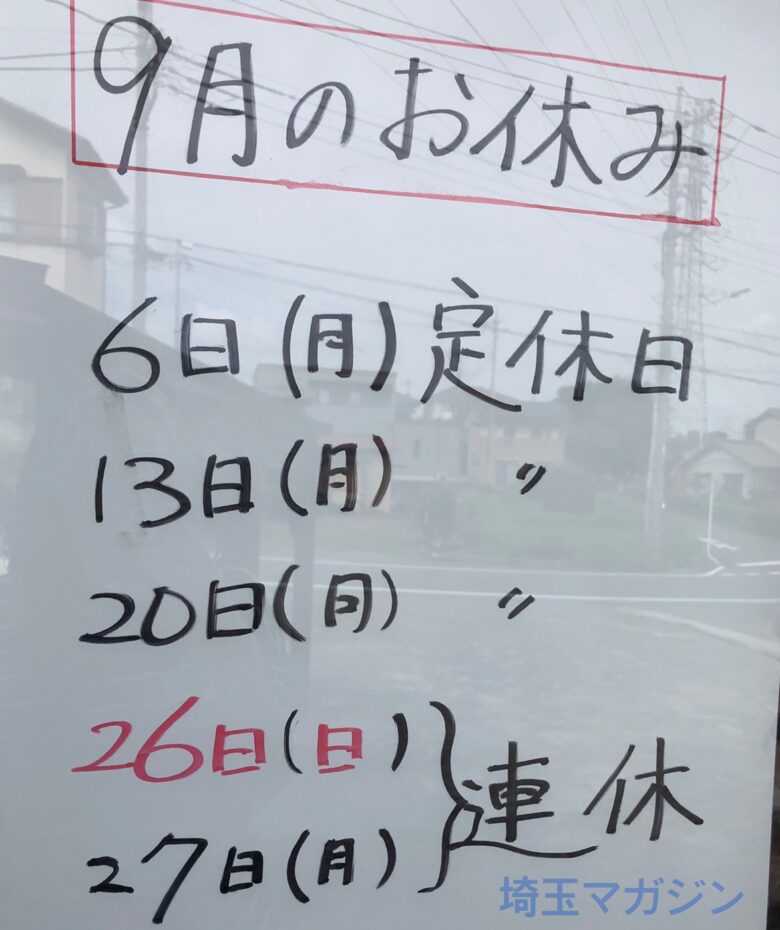 9月のお休み
6日(月)定休日
13日(月) 〃
20日(月) 〃
26日(日)
27日(月)
連休
埼玉マガジン